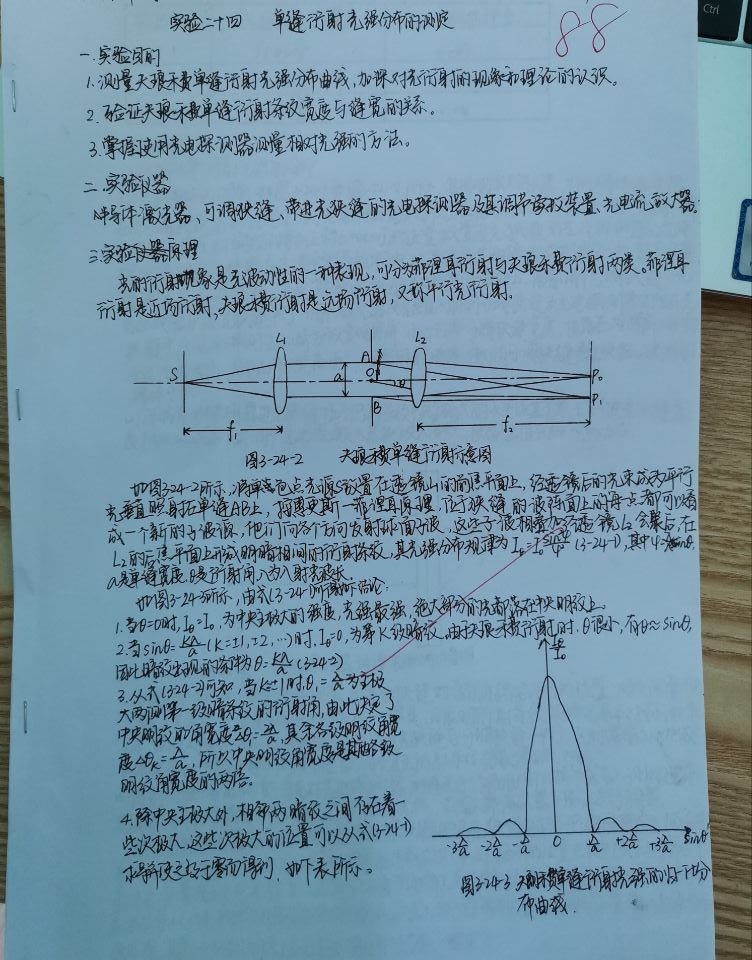 Ctrl
实验二十四 单缝衍射光强分布的测定
88
一.实验目的
1.测量夫琅禾费单缝衍射光强分布曲线,加深对光衍射的现象和理论的认识。
2.验证夫琅禾费单缝衍射条纹宽度与缝宽的关系。
3.掌握使用光电探测器测量相对光强的方法。
二.实验仪器
半导体激光器、可调狭缝、带进光狭缝的光电探测器及其调节读数装置、光电流放大器。
三.实验仪器原理
光的衍射现象是光波动性的一种表现,可分为菲涅耳衍射与夫琅禾费衍射两类。菲涅耳
衍射是近场衍射,夫琅禾费衍射是远场衍射,又称平行光衍射。
L₁ A L₂
S a O θ P₀
B P₁
f₁ f₂
图3-24-2 夫琅禾费单缝衍射示意图
如图3-24-2所示,将单色点光源S放置在透镜L1的前焦平面上,经透镜后的光束成为平行
光垂直照射在单缝AB上,按惠更斯—菲涅耳原理,位于狭缝的波阵面上的每点都可以看
成一个新的子波源,他们向各个方向发射球面子波,这些子波相叠加经透镜L₂会聚后,在
L₂的后焦平面上形成明暗相间的衍射条纹,其光强分布规律为 (3-24-1),其中
a是单缝宽度,θ是衍射角,λ为入射光波长。
如图3-24-3所示,由式(3-24-1)可得如下结论:
1.当θ=0时,Iθ=I₀,为中央主极大的强度,光强最强,绝大部分的光都落在中央明纹上。
2.当sinθ=kλ/a(k=±1,±2,…)时,Iθ=0,为第k级暗纹,由于夫琅禾费衍射时,θ很小,有θ≈sinθ,
因此暗纹出现的条件为θ=kλ/a (3-24-2)
3.从式(3-24-2)可知,当k=±1时,θ₁=±λ/a为主极
大两侧第一级暗条纹的衍射角,由此决定了
中央明纹的角宽度Δθ₀=2λ/a,其余各级明纹角宽
度Δθk=λ/a,所以中央明纹角宽度是其他各级
明纹角宽度的两倍。
4.除中央主极大外,相邻两暗纹之间存在着一
些次极大,这些次极大的位置可以从式(3-24-1)
求导并使之等于零而得到,如下表所示。
Iθ/I₀
-3λ/a -2λ/a -λ/a 0 λ/a +2λ/a +3λ/a sinθ
图3-24-3 夫琅禾费单缝衍射光强的分
布曲线.